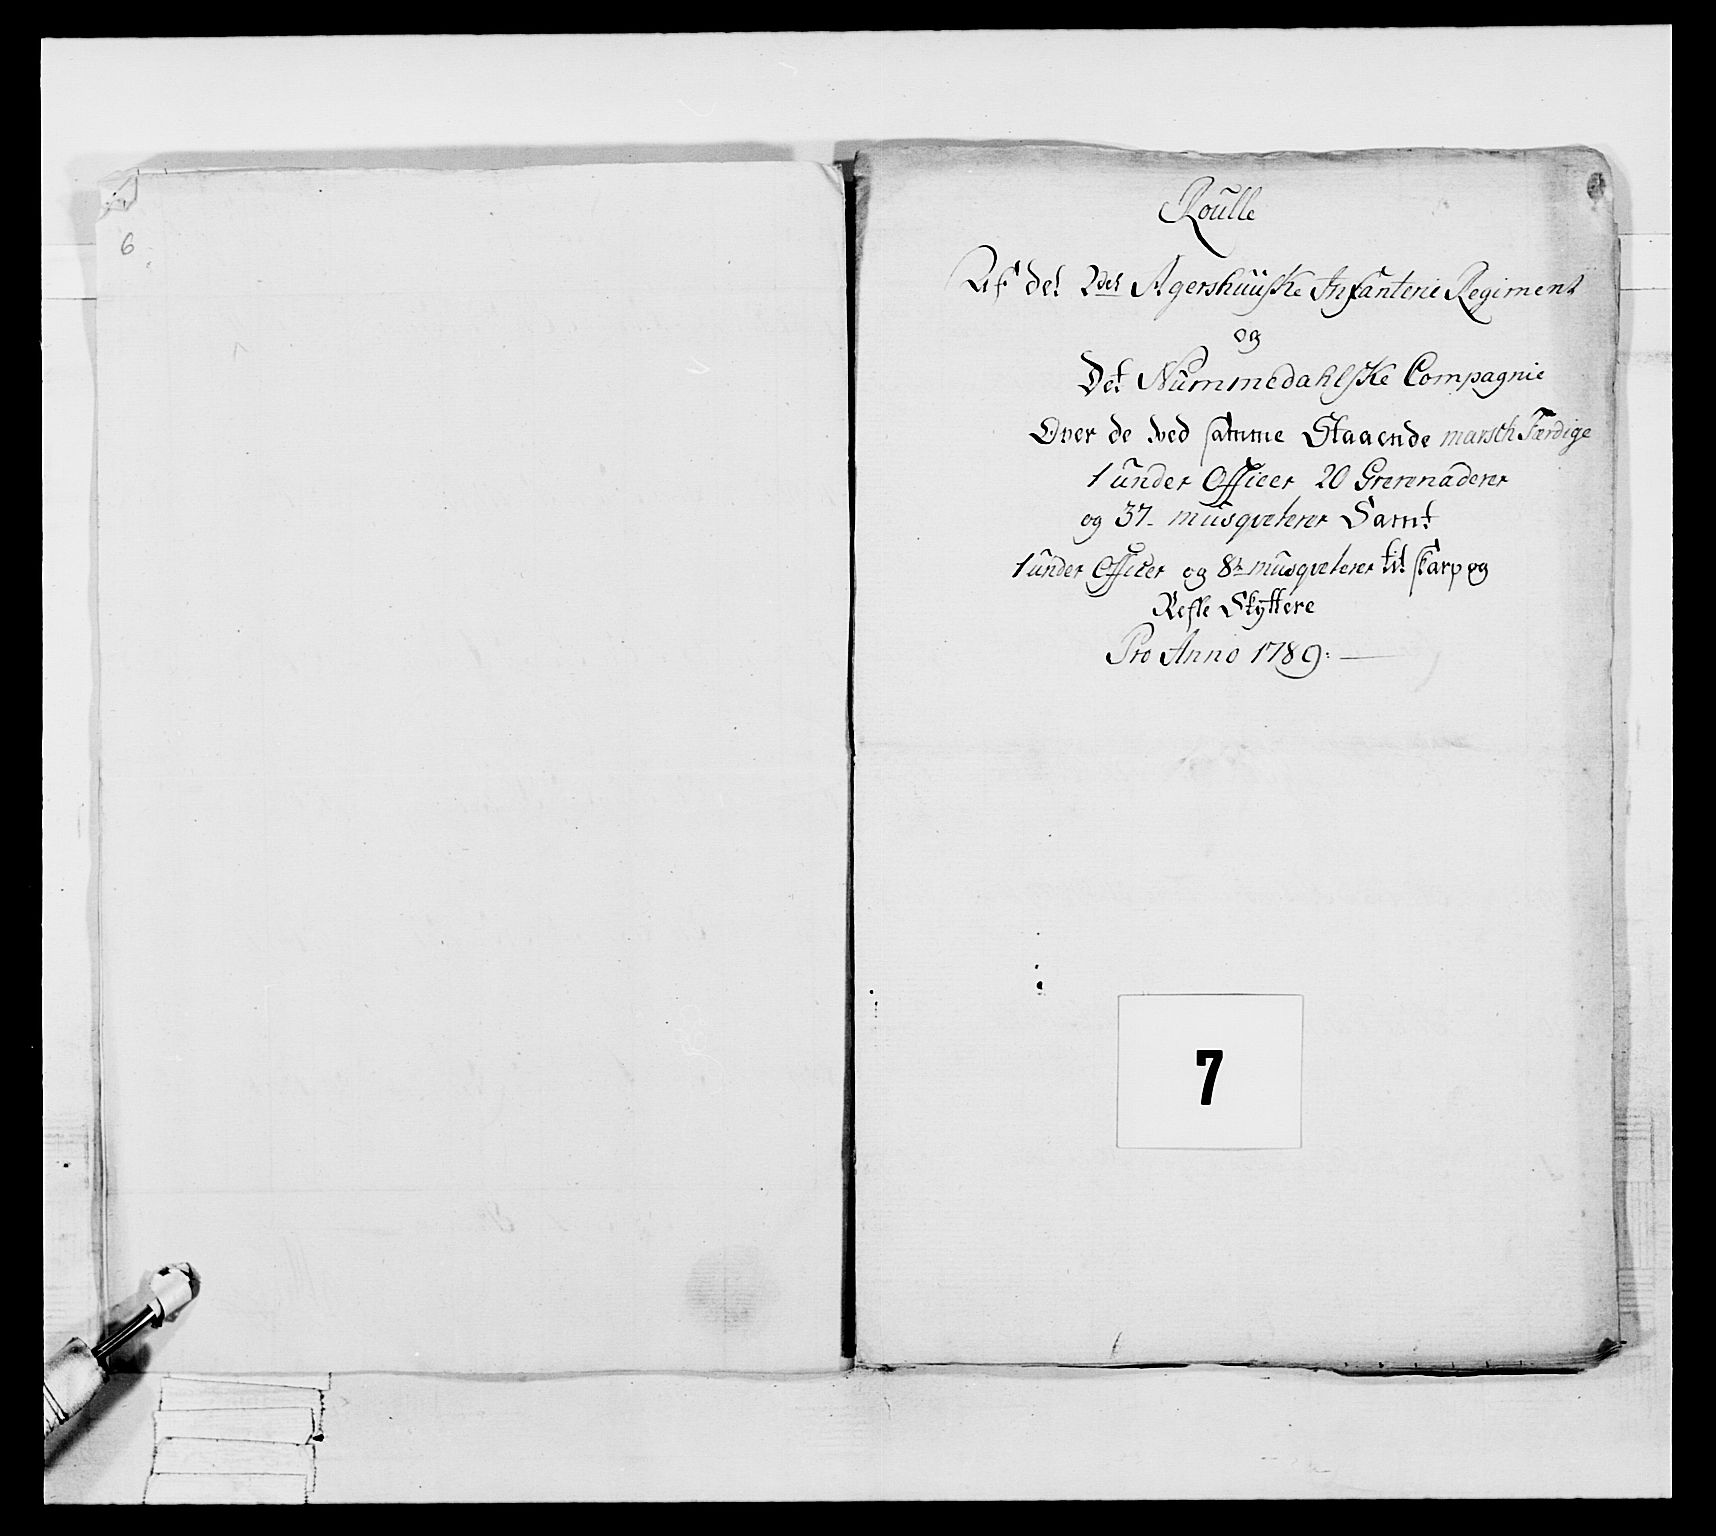 6
Roulle
Af det 2det Agershuuske Infanterie Regiment
og
Det Nummedahlske Compagnie
Over de ved samme Staaende marsch Færdige
1 under Officer 20 Grerenaderer
og 37 musqveterer Samt
1 under Officer og 8te musqveterer til skarp og
Refle Skyttere
Pro Anno 1789.
7